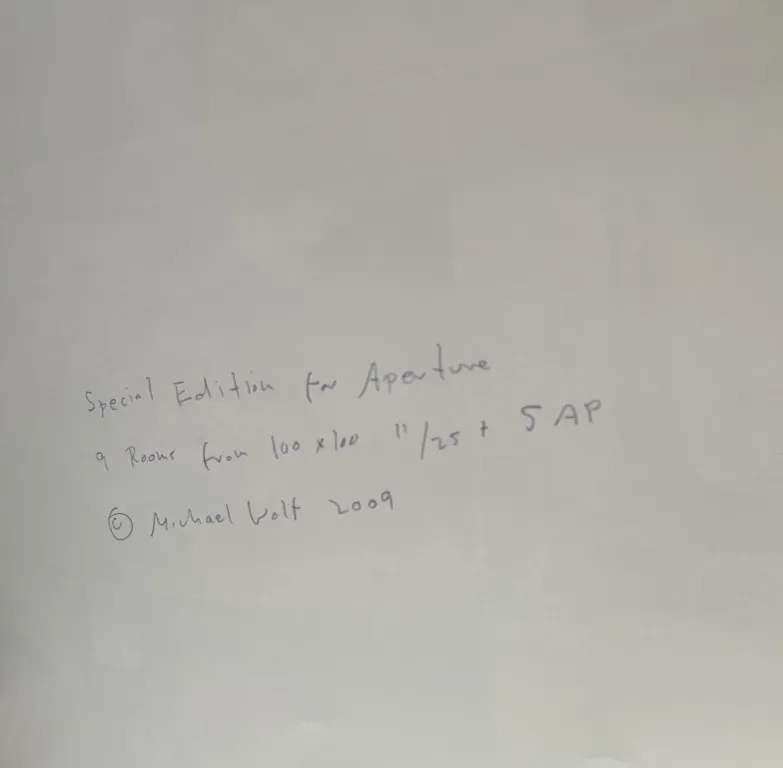 Special Edition for Aperture
9 Rooms from 100 x 100 11/25 + 5 AP
© Michael Wolf 2009